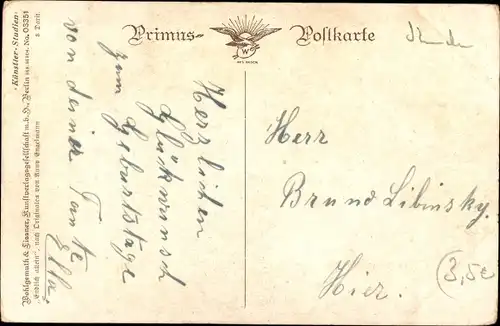 Primus-
Postkarte
W & L
Herzlichen
Glückwunsch
zum Geburtstage
von deiner Tante
Ella.
Herr
Bruno Libinsky.
Hier.
3,5€
-Künstler-Studien-
Wohlgemuth & Lissner, Kunstverlagsgesellschaft m.b.H., Berlin No. 03351
"Endlich allein", nach Originalen von Hans